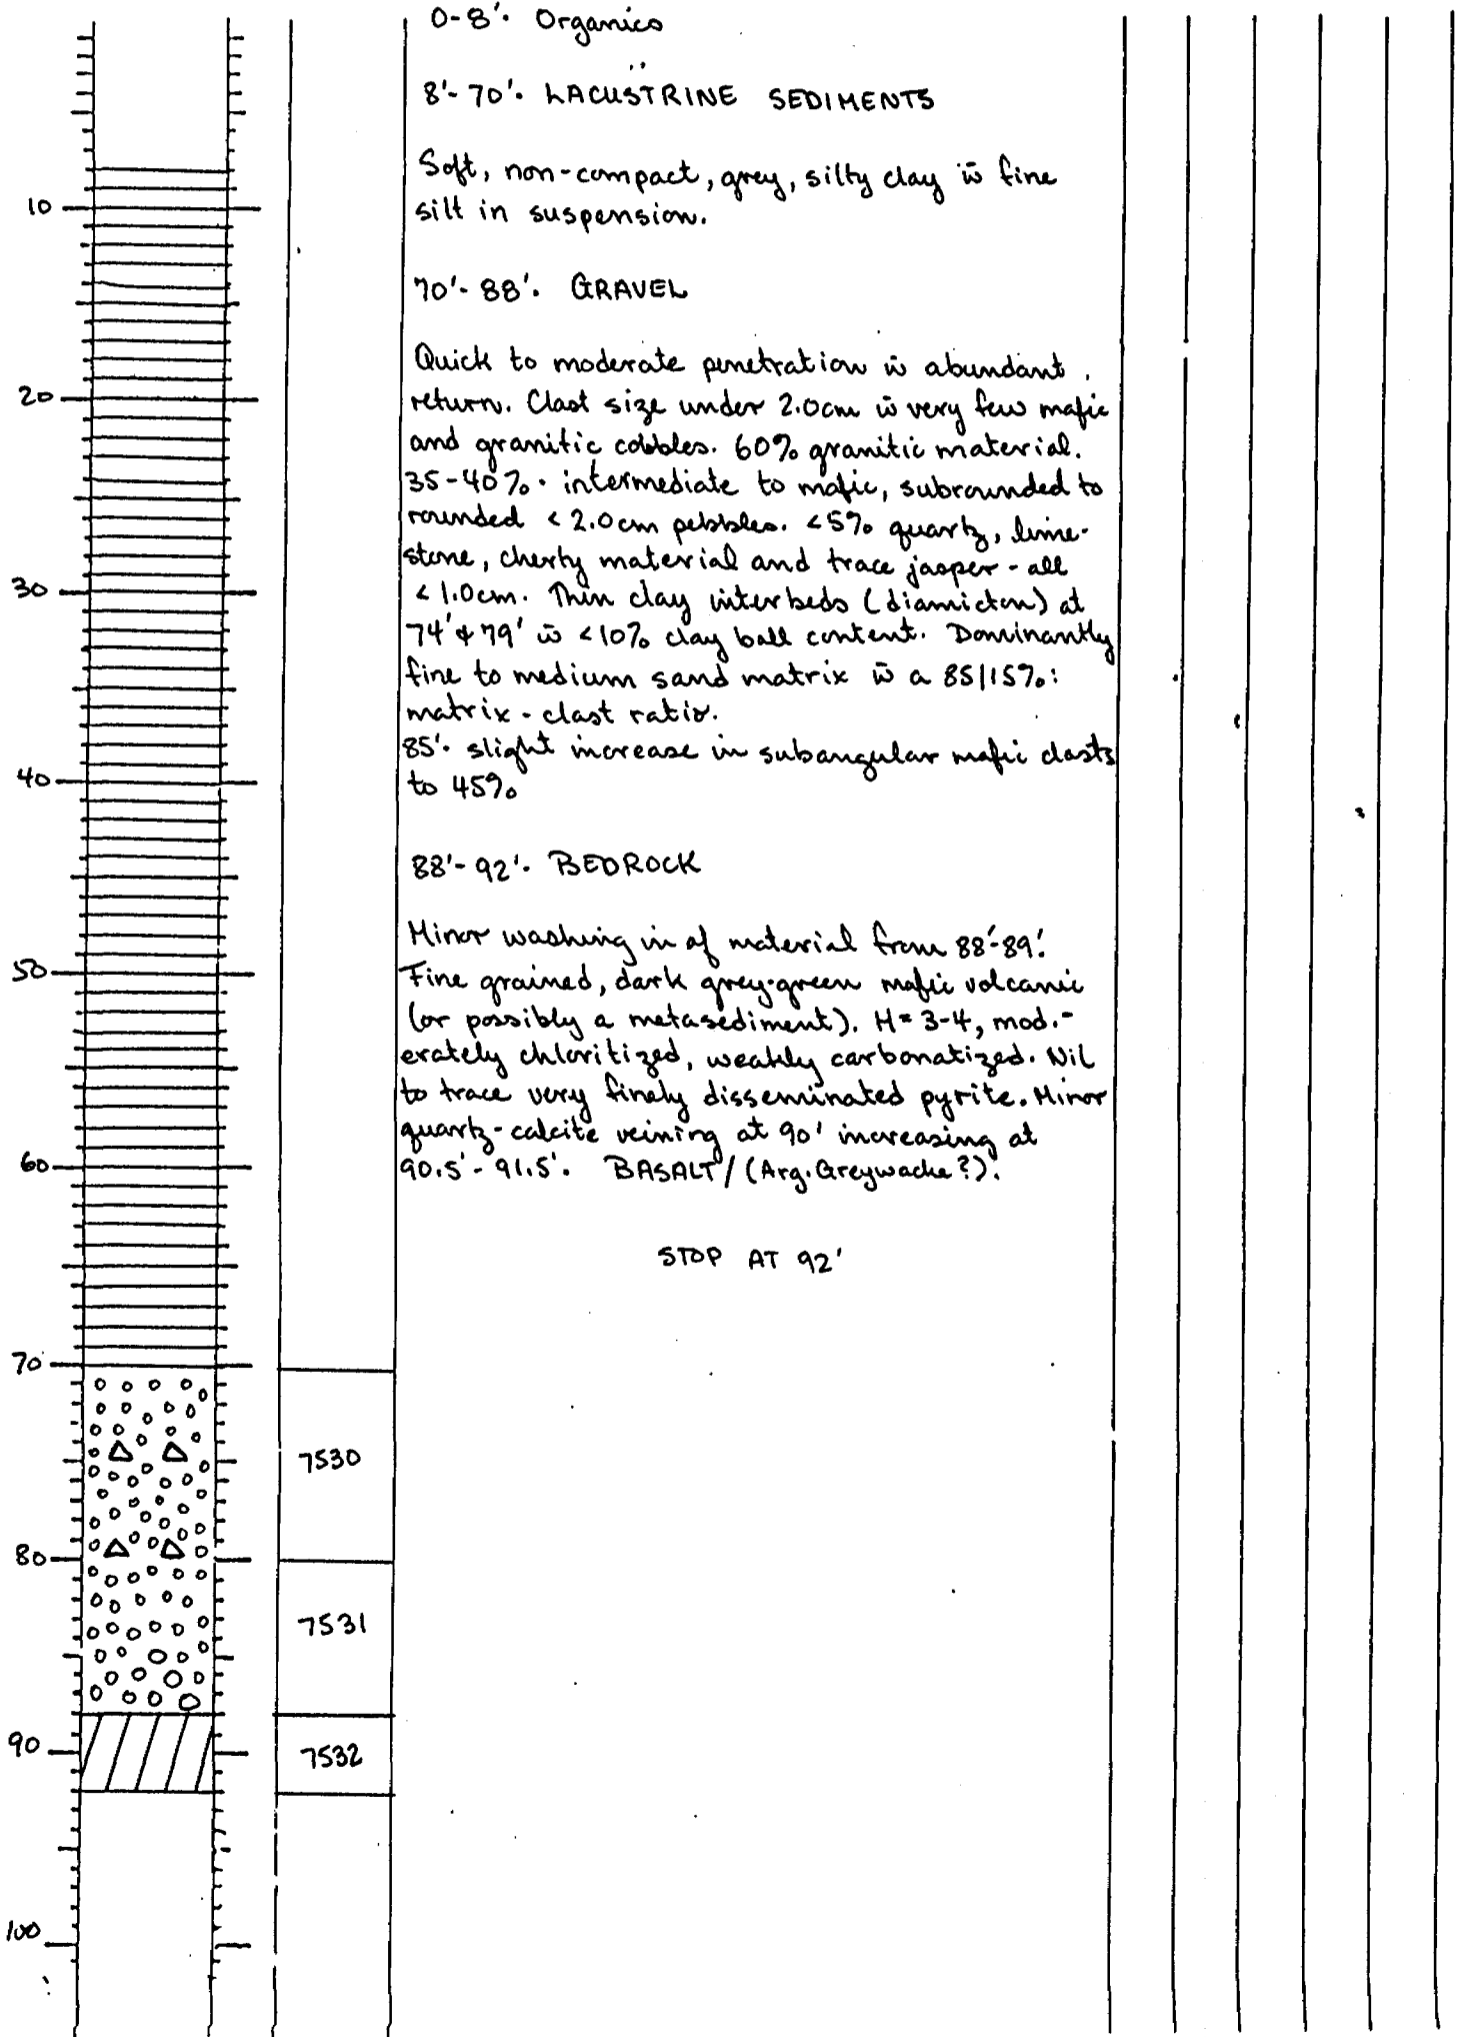 0-8'. Organics
8'-70'. LACUSTRINE SEDIMENTS
Soft, non-compact, grey, silty clay w̄ fine
silt in suspension.
10
70'-88'. GRAVEL
Quick to moderate penetration w̄ abundant
return. Clast size under 2.0cm w̄ very few mafic
20
and granitic cobbles. 60% granitic material.
35-40% intermediate to mafic, subrounded to
rounded < 2.0cm pebbles. <5% quartz, lime-
stone, cherty material and trace jasper - all
< 1.0cm. Thin clay interbeds (diamicton) at
30
74' & 79' w̄ <10% clay ball content. Dominantly
fine to medium sand matrix w̄ a 85/15%:
matrix-clast ratio.
85'. slight increase in subangular mafic clasts
to 45%
40
88'-92'. BEDROCK
Minor washing in of material from 88'-89'.
Fine grained, dark grey-green mafic volcanic
50
(or possibly a metasediment). H= 3-4, mod.-
erately chloritized, weakly carbonatized. Nil
to trace very finely disseminated pyrite. Minor
quartz-calcite veining at 90' increasing at
90.5'-91.5'. BASALT/(Arg. Greywacke?).
60
STOP AT 92'
70
7530
80
7531
90
7532
100